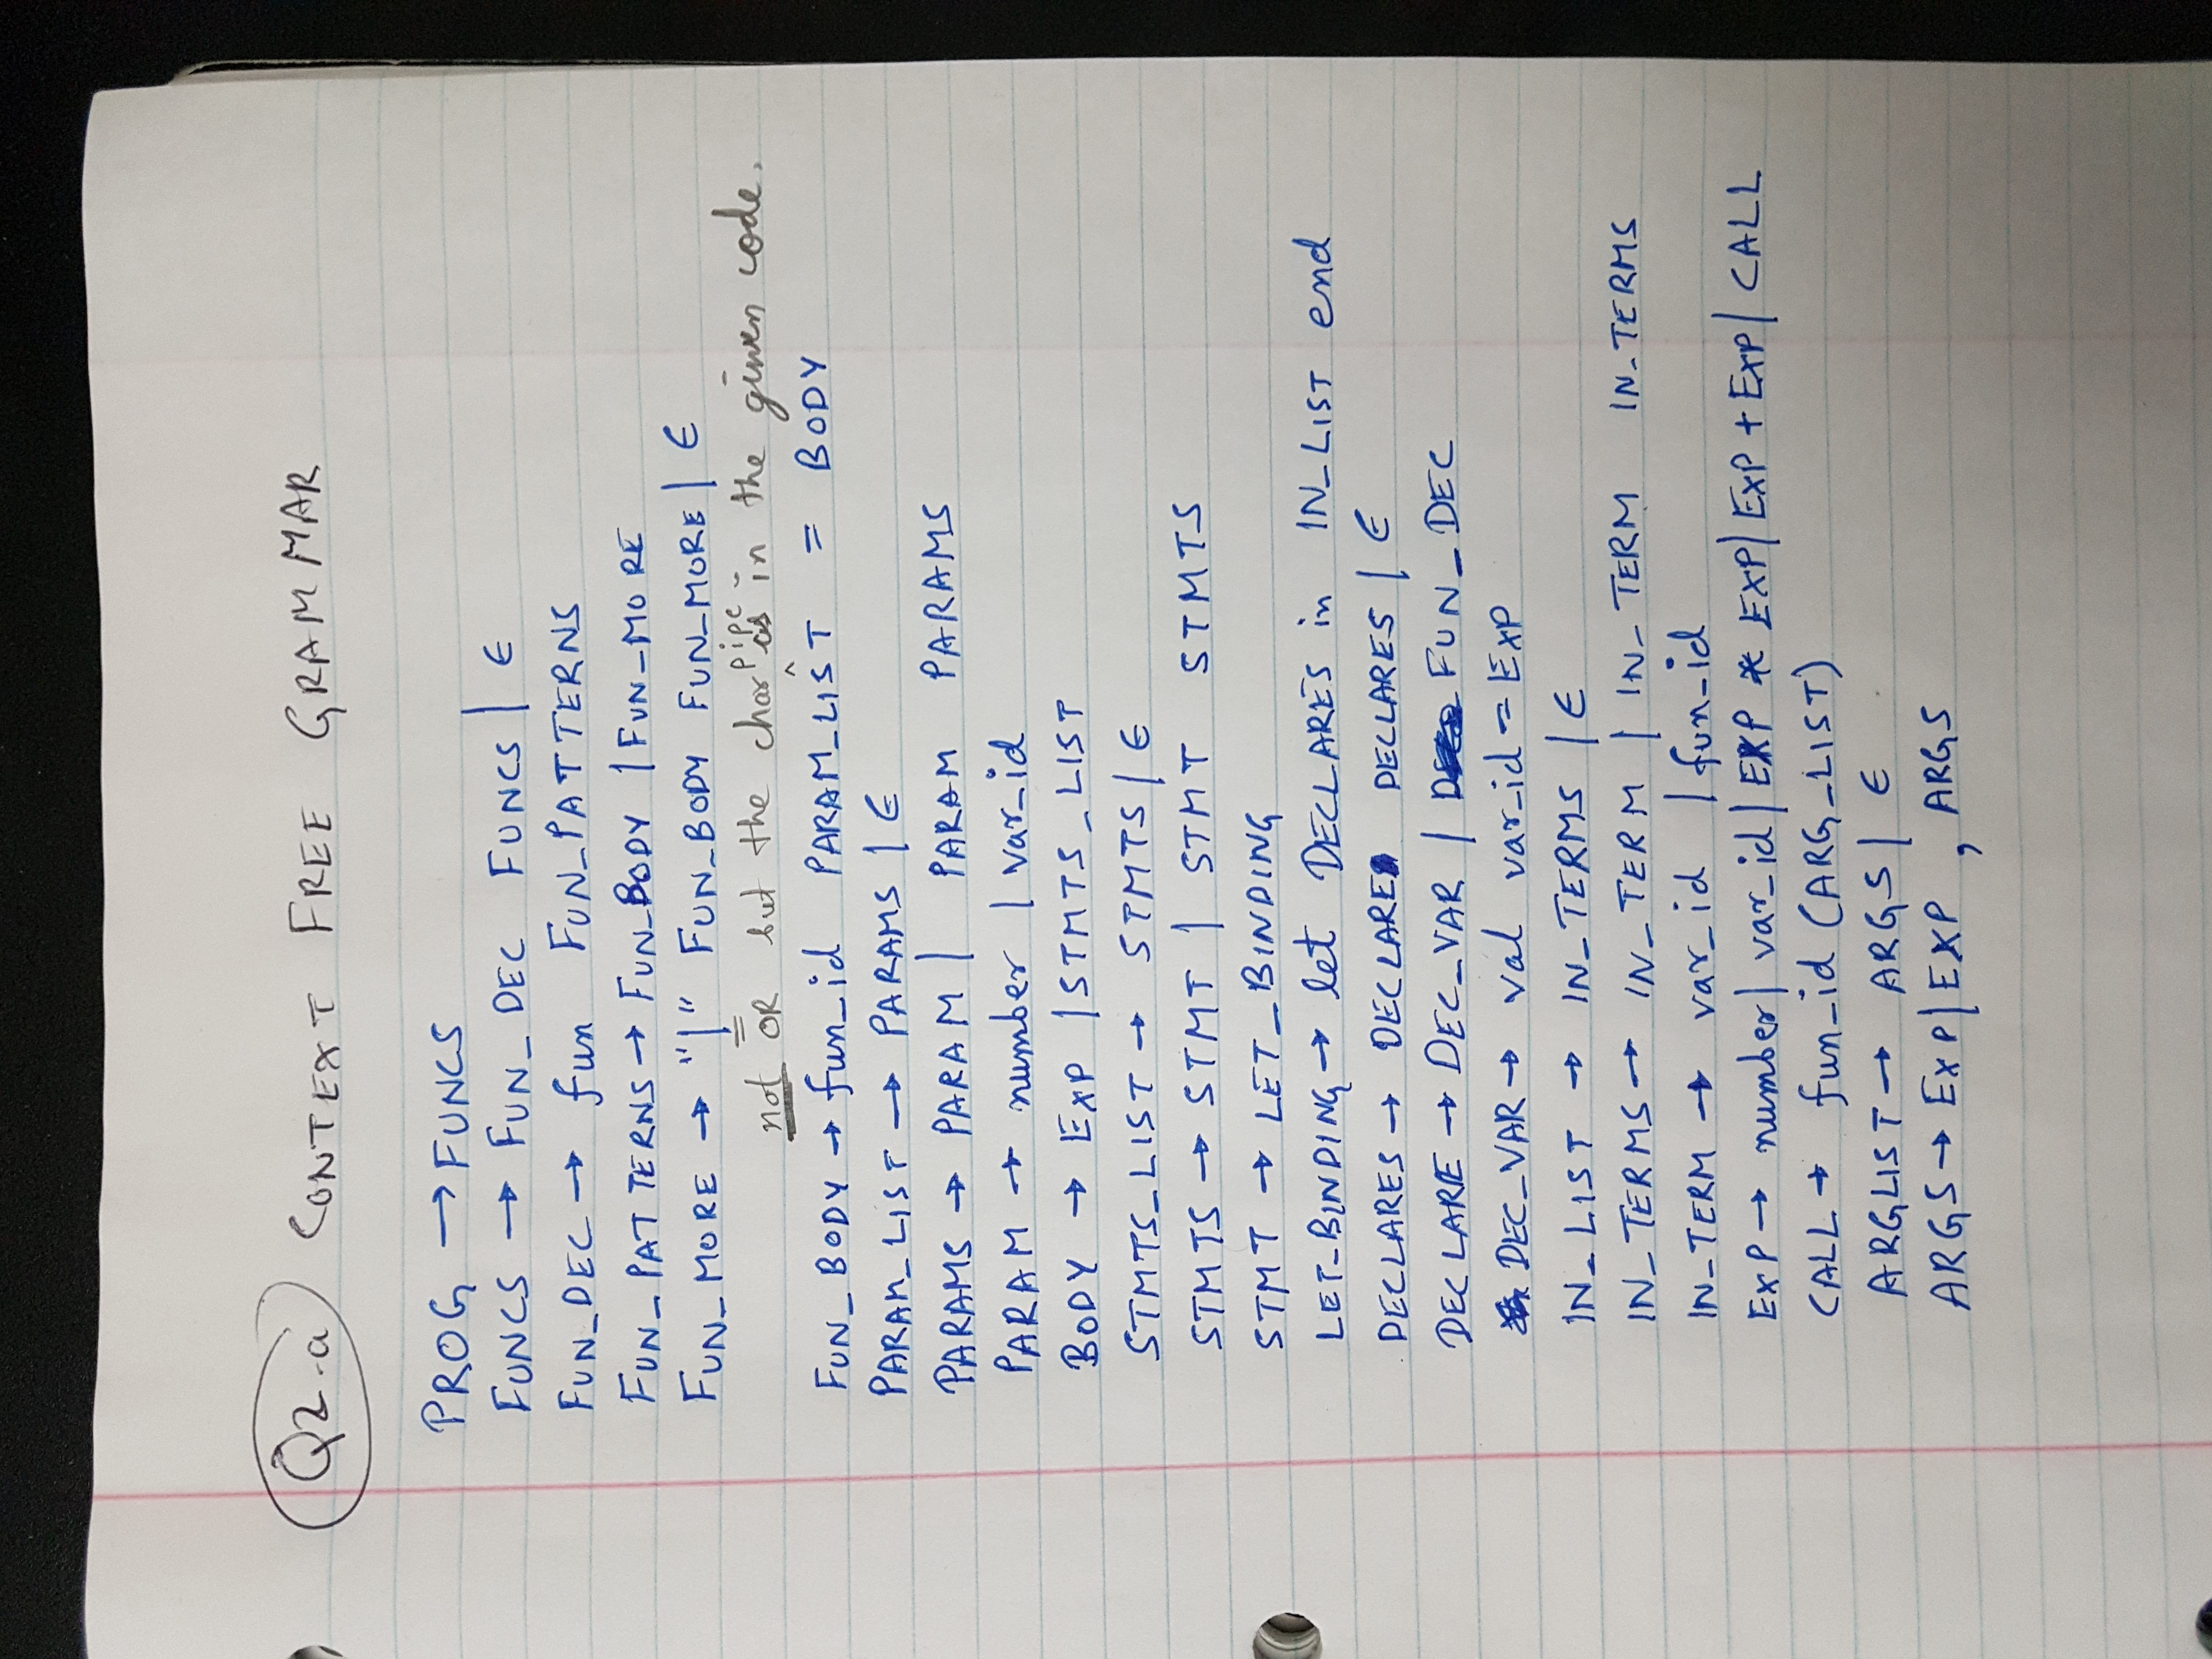 Q2-a CONTEXT FREE GRAMMAR
PROG → FUNCS
FUNCS → FUN_DEC FUNCS | ϵ
FUN_DEC → fun FUN_PATTERNS
FUN_PATTERNS → FUN_BODY | FUN_MORE
FUN_MORE → "|" FUN_BODY FUN_MORE | ϵ
not OR but the char pipe as in the given code.
FUN_BODY → fun_id PARAM_LIST = BODY
PARAM_LIST → PARAMS | ϵ
PARAMS → PARAM | PARAM PARAMS
PARAM → number | var_id
BODY → EXP | STMTS_LIST
STMTS_LIST → STMTS | ϵ
STMTS → STMT | STMT STMTS
STMT → LET_BINDING
LET_BINDING → let DECLARES in IN_LIST end
DECLARES → DECLARE DECLARES | ϵ
DECLARE → DEC_VAR | FUN_DEC
DEC_VAR → val var_id = EXP
IN_LIST → IN_TERMS | ϵ
IN_TERMS → IN_TERM | IN_TERM IN_TERMS
IN_TERM → var_id | fun_id
EXP → number | var_id | EXP * EXP | EXP + EXP | CALL
CALL → fun_id (ARG_LIST)
ARGLIST → ARGS | ϵ
ARGS → EXP | EXP , ARGS